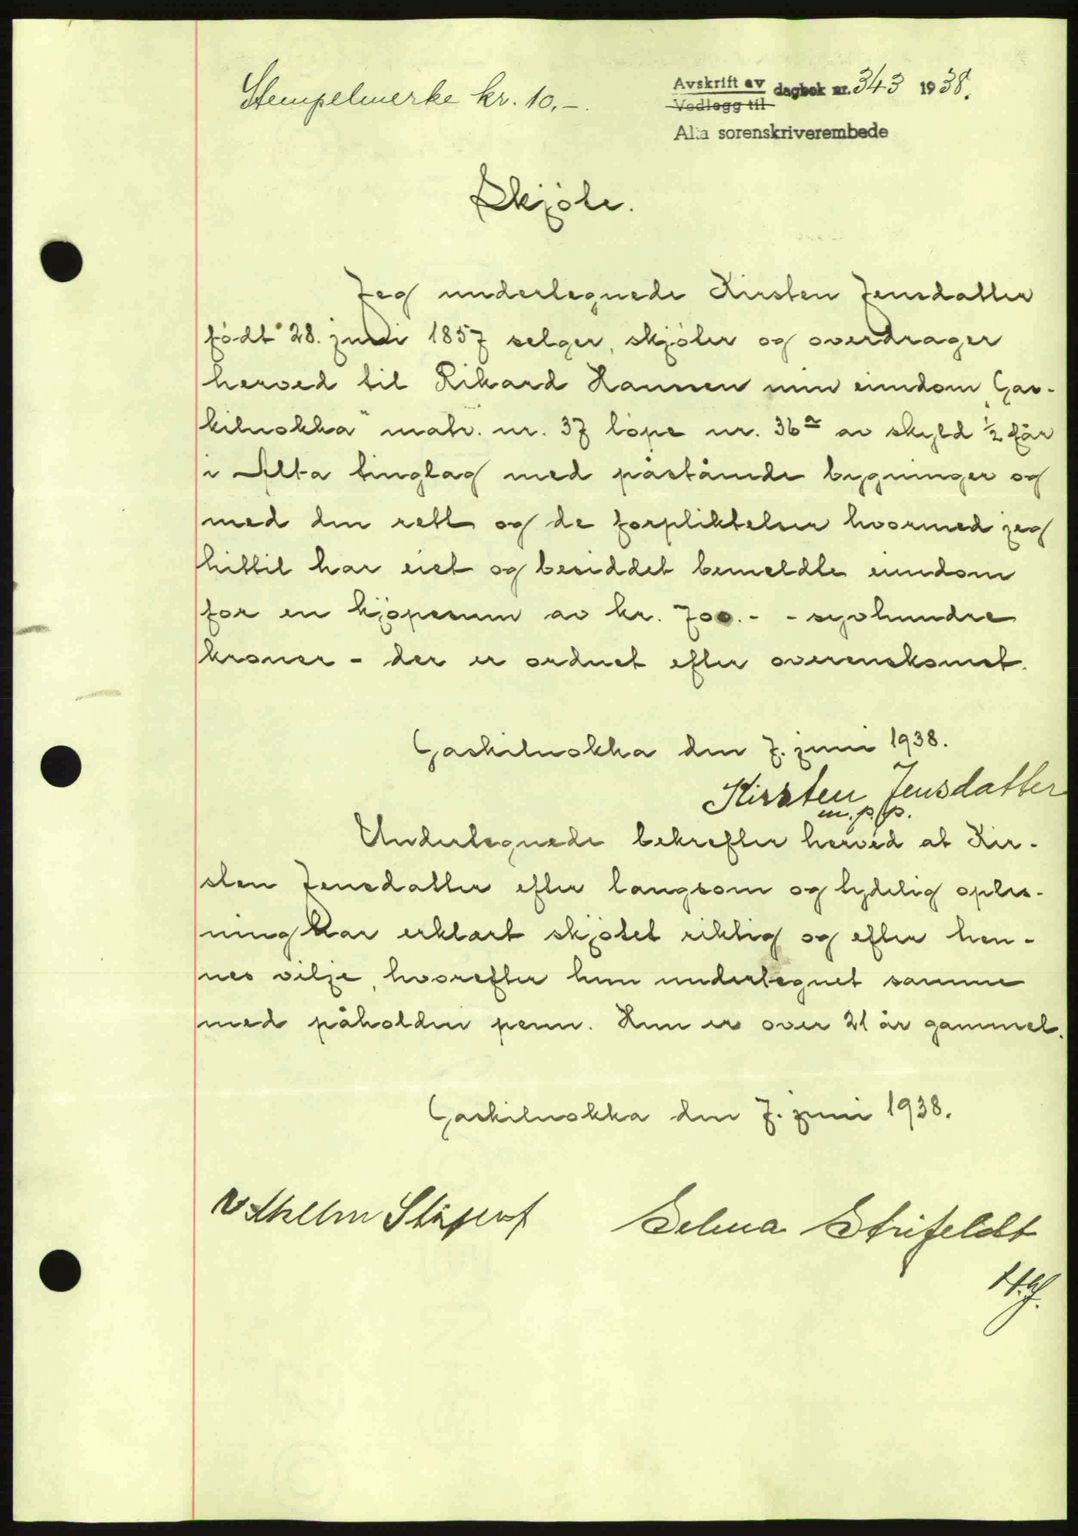 Stempelmerke kr. 10,-.
Avskrift av
Vedlegg til
dagbok nr. 343 1938.
Alta sorenskriverembede
Skjöte.
Jeg undertegnede Kirsten Jensdatter
født 28. juni 1857 selger, skjöter og overdrager
herved til Rikard Hansen min eiendom „Gas-
kiluokka" matr. nr. 37 löpe nr. 36a av skyld ½ får
i Alta tinglag med påstående bygninger og
med den rett og de forpliktelser hvormed jeg
hittil har eiet og besiddet bemeldte eiendom
for en kjöpesum av kr. 700.- - syvhundre
kroner - der er ordnet efter overenskomst.
Gaskiluokka den 7. juni 1938.
Kirsten Jensdatter
m. p. p.
Undertegnede bekrefter herved at Kir-
sten Jensdatter efter langsom og tydelig oples-
ning har erklært skjötet riktig og efter hen-
nes vilje, hvorefter hun undertegnet samme
med påholden penn. Hun er over 21 år gammel.
Gaskiluokka den 7. juni 1938.
Vilhelm Selma Strifeldt